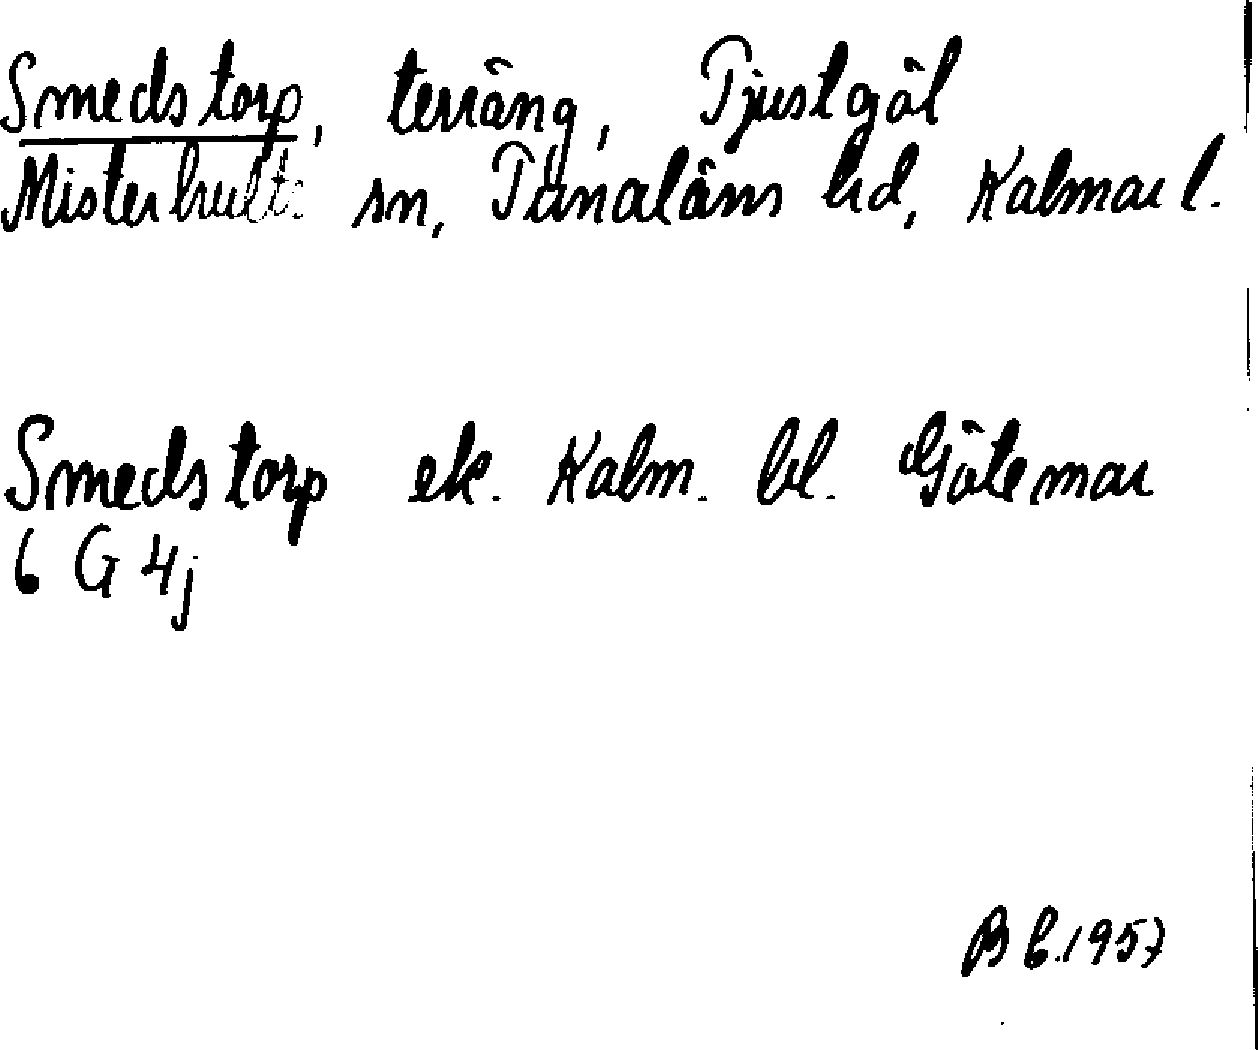 Smedstorp, terräng, Tjustgöl
Misterhults sn, Tunaläns hd, Kalmar l.
Smedstorp ek. Kalm. bl. Götemar
6 G 4j
B b.1957